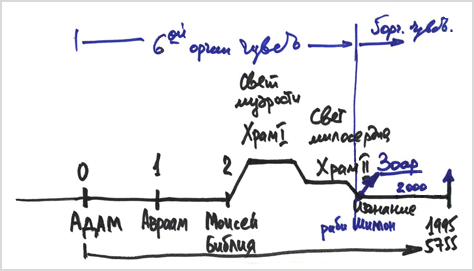 6ой орган чувств
5 орг. чувств.
Свет
мудрости
Храм I
Свет
милосердия
Храм II
Зоар
0
1
2
2000
АДАМ
Авраам
Моисей
Библия
Изгнание
раби Шимон
1995
5755